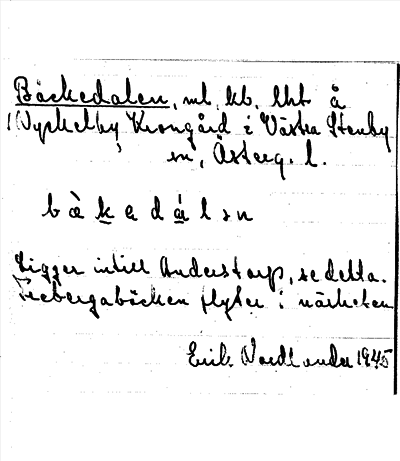 Bäckedalen, ml, kb. lht å
Nyckelby Krongård i Västra Stenby
sn, Österg. l.
b à k e d á l ə n
Ligger intill Anderstorp, se detta.
Trebergabäcken flyter i närheten
Erik Nordlander 1945